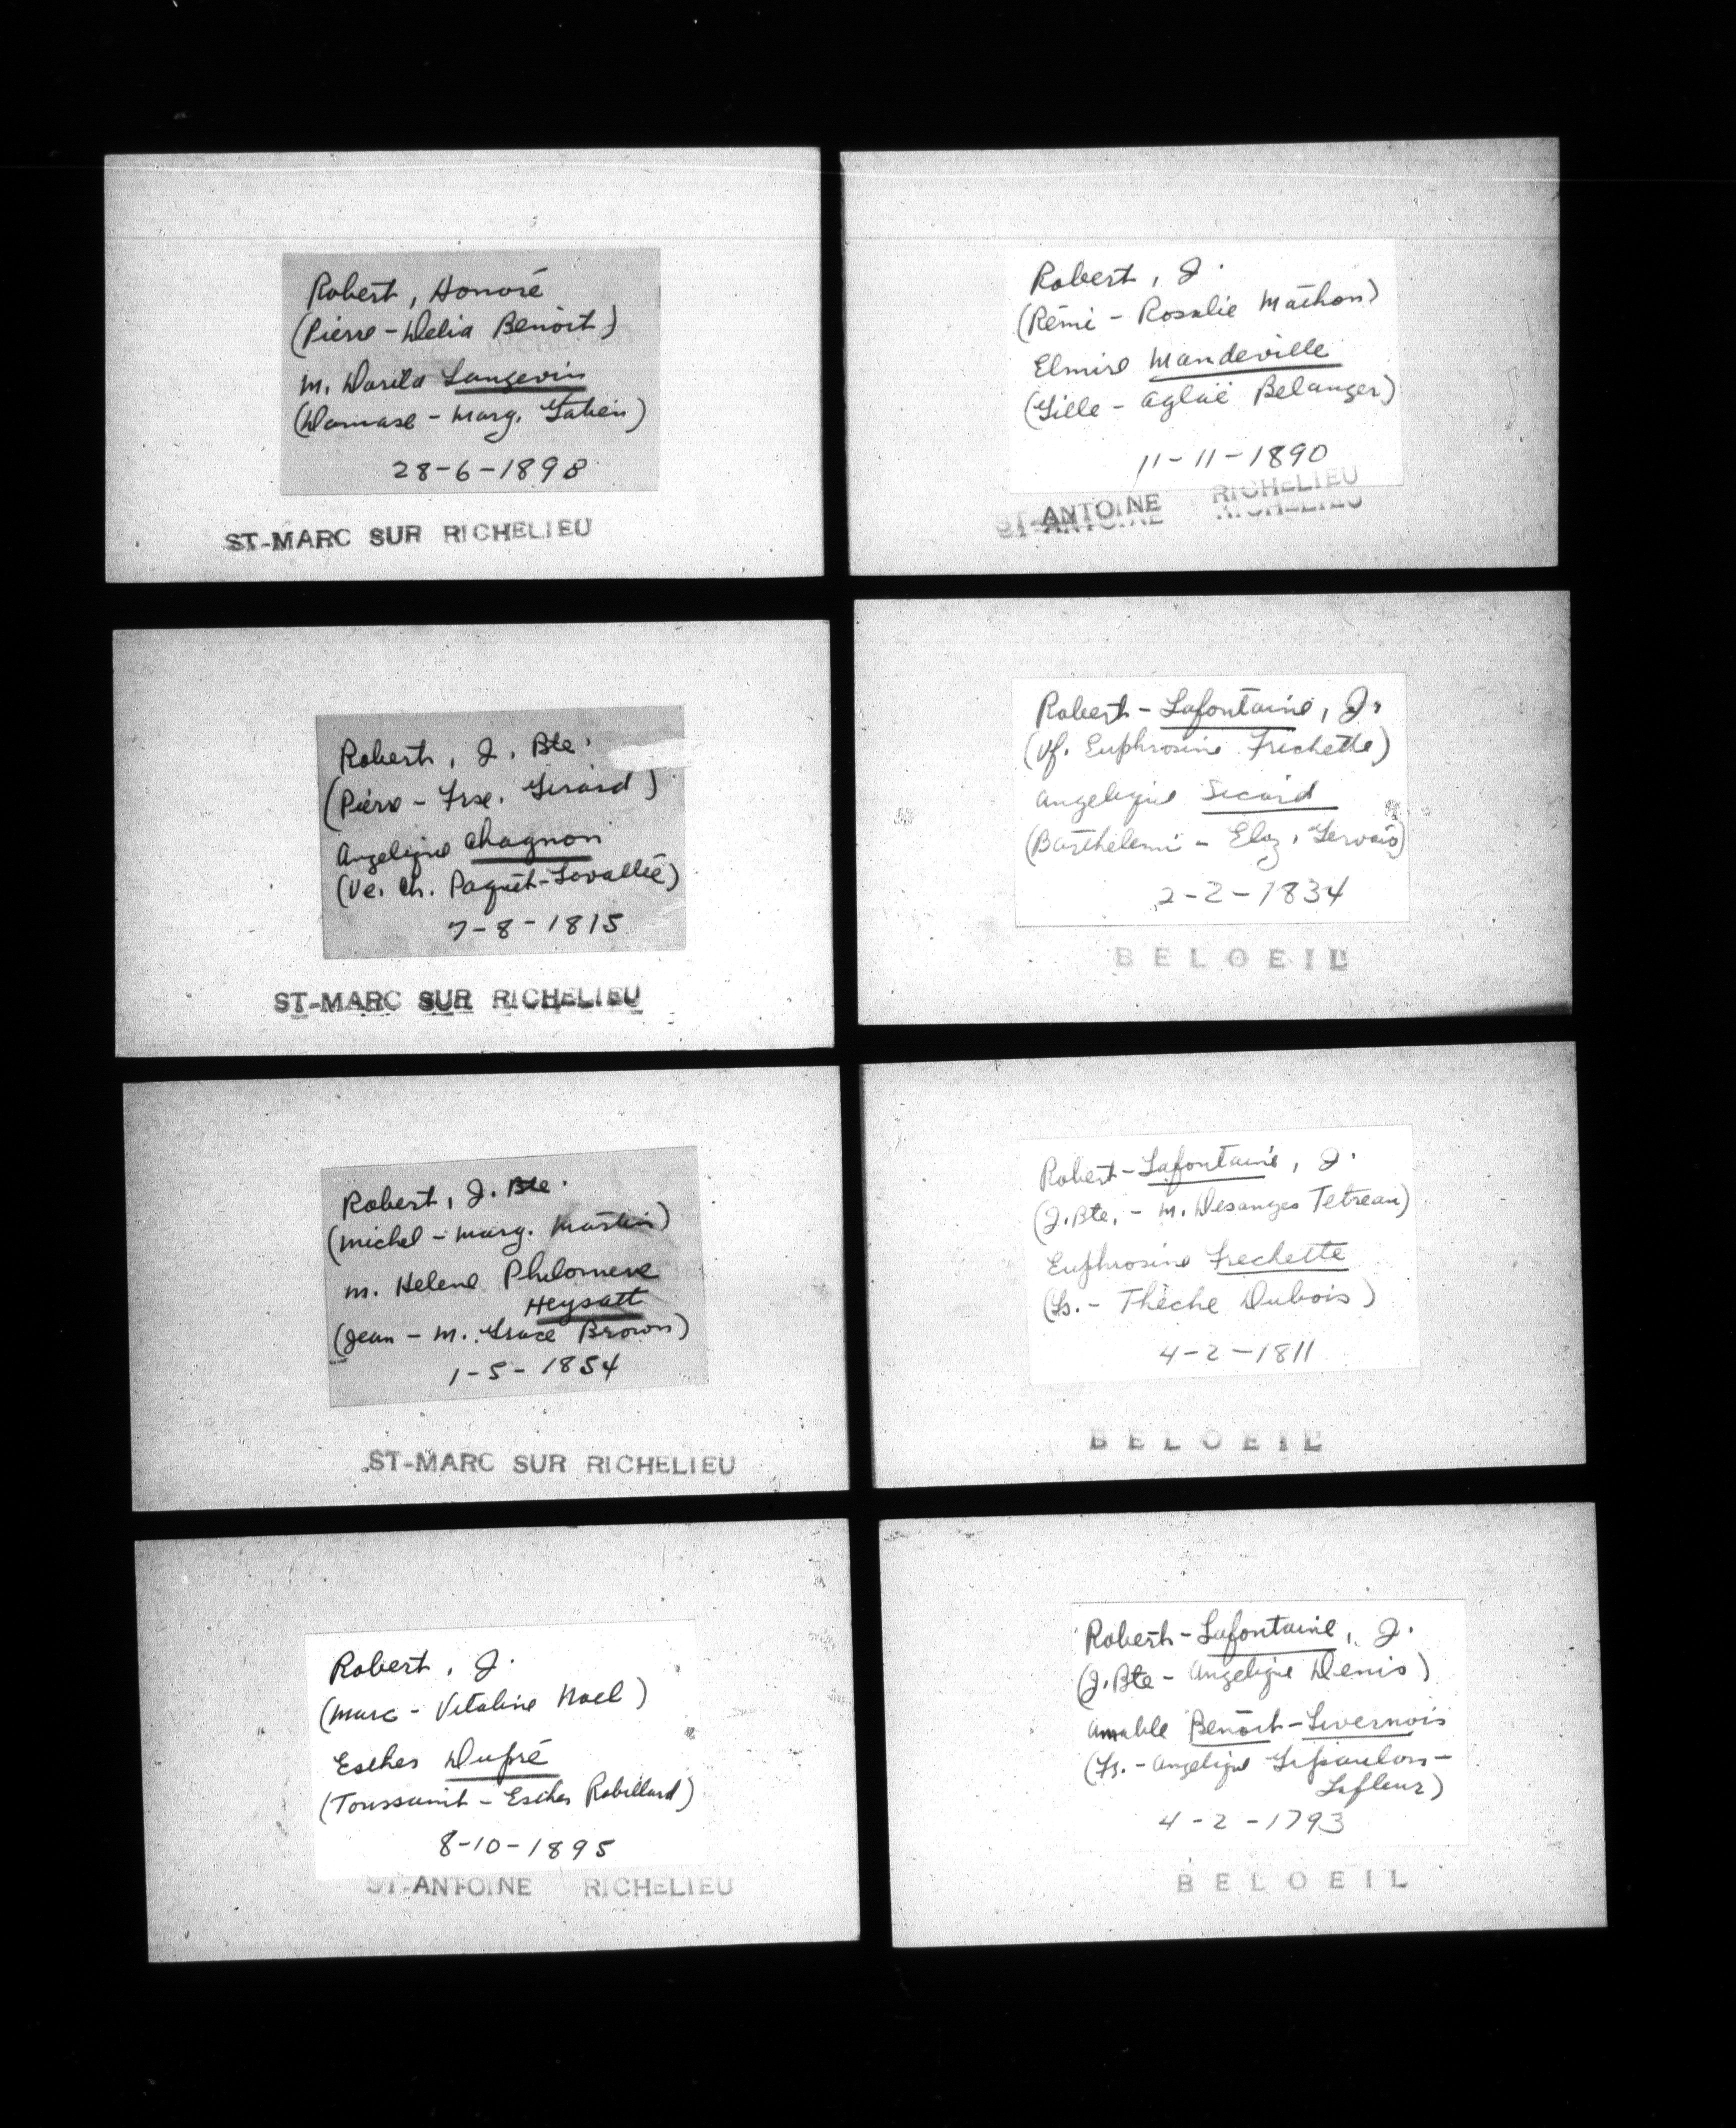 Robert, Honoré
(Pierre - Delia Benoit)
M. Dorila Langevin
(Damase - Marg. Gatien)
28-6-1898
ST-MARC SUR RICHELIEU
Robert, J. Bte.
(Pierre - Frse. Girard)
Angelique Chagnon
(Ve. Ch. Paquet-Lavallée)
7-8-1815
ST-MARC SUR RICHELIEU
Robert, J. Bte.
(Michel - Marg. Martin)
M. Helene Philomene
Heysatt
(Jean - M. Grace Brown)
1-5-1854
ST-MARC SUR RICHELIEU
Robert, J.
(Marc - Vitaline Noel)
Esther Dupré
(Toussaint - Esther Robillard)
8-10-1895
ST-ANTOINE RICHELIEU
Robert, J.
(Rémi - Rosalie Mathon)
Elmire Mandeville
(Gille - Aglaé Belanger)
11-11-1890
ST-ANTOINE RICHELIEU
Robert-Lafontaine, J.
(Vf. Euphrosine Frichette)
Angelique Sicard
(Barthélemi - Elaz. Gervais)
2-2-1834
BELOEIL
Robert-Lafontaine, J.
(J. Bte. - M. Desanges Tetreau)
Euphrosine Frechette
(Ls. - Thèche Dubois)
4-2-1811
BELOEIL
Robert-Lafontaine, J.
(J. Bte - Angelique Denis)
Amable Benoit-Livernois
(Fs. - Angelique
Lafleur)
4-2-1793
BELOEIL